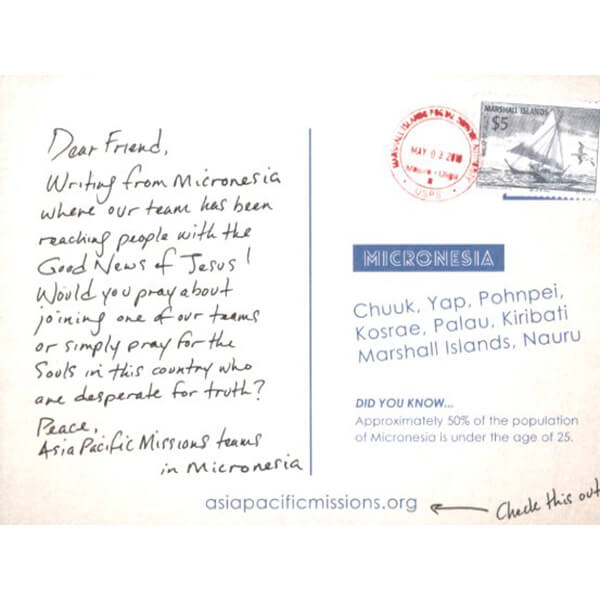 Dear Friend,
Writing from Micronesia
where our team has been
reaching people with the
Good News of Jesus!
Would you pray about
joining one of our teams
or simply pray for the
Souls in this country who
are desperate for truth?
Peace,
Asia Pacific Missions teams
in Micronesia
MARSHALL ISLANDS
$5
MARSHALL ISLANDS POSTAL SERVICE
MAY 03 2018
USPS
MICRONESIA
Chuuk, Yap, Pohnpei,
Kosrae, Palau, Kiribati
Marshall Islands, Nauru
DID YOU KNOW...
Approximately 50% of the population
of Micronesia is under the age of 25.
asiapacificmissions.org
Check this out